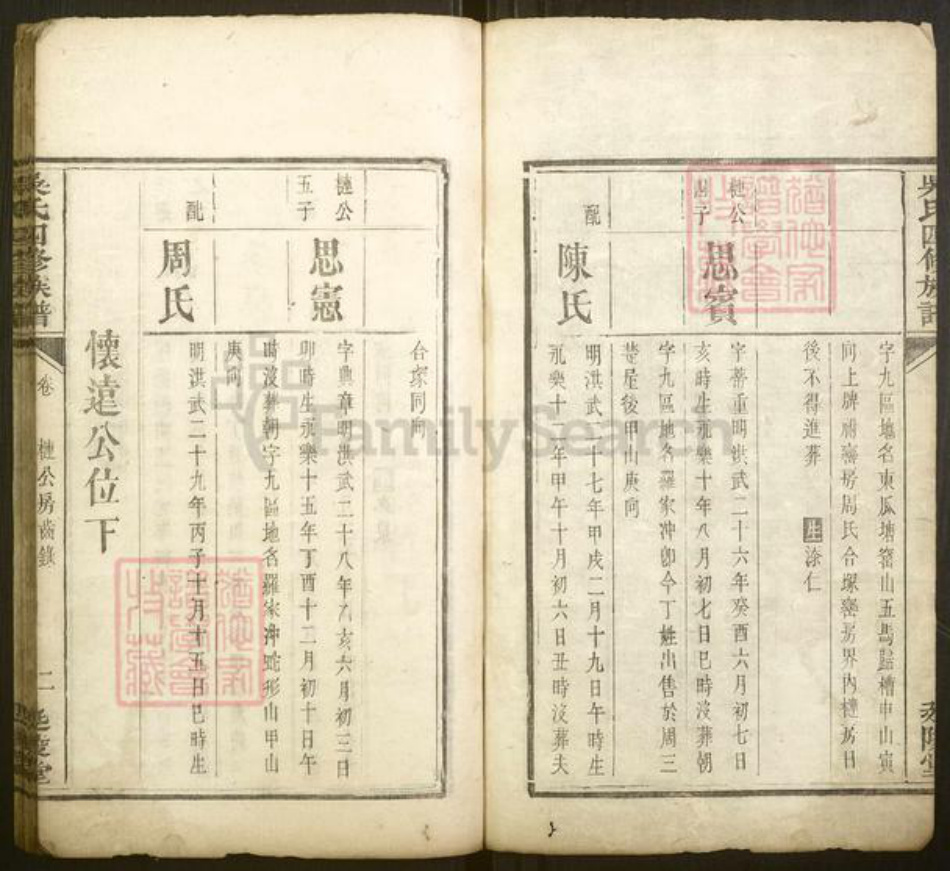 字九區地名東瓜塘窰山五馬歸槽申山寅
向上牌祠
房周氏合塚
房界內樾房日
後不得進葬 生添仁
樾公
子
思賓
字蕃重明洪武二十六年癸酉六月初七日
亥時生永樂十年八月初七日巳時沒葬朝
字九區地名羅家冲卽今丁姓出售於周三
楚屋後甲山庚向
配
陳氏
明洪武二十七年甲戌二月十九日午時生
永樂十二年甲午十月初六日丑時沒葬夫
合塚同向
樾公
五子
思憲
字典章明洪武二十八年乙亥六月初三日
卯時生永樂十五年丁酉十二月初十日午
時沒葬朝字九區地名羅家冲蛇形山甲山
庚向
配
周氏
明洪武二十九年丙子十月十五日巳時生
懷遠公位下
吳氏四修族譜
卷
樾公房齒錄
二
延陵堂
FamilySearch